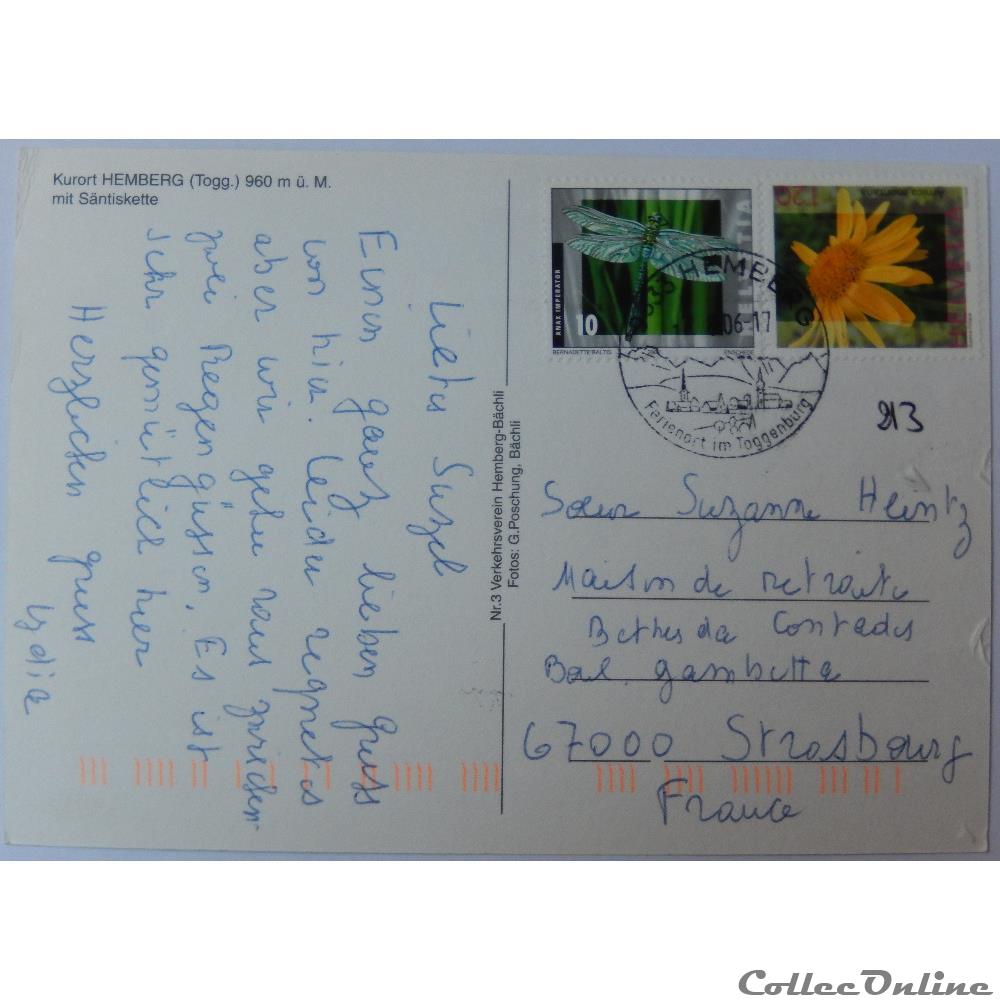 Kurort HEMBERG (Togg.) 960 m ü. M.
mit Säntiskette
Liebes Suzel
Einen ganz lieben gruss
von hier. Leider regnet es
aber wir gehen raus zwischen-
zwei Regengüssen. Es ist
sehr gemütlich hier
Herzlichen gruss
Lydia
Nr.3 Verkehrsverein Hemberg-Bächli
Fotos: G.Poschung, Bächli
ANAX IMPERATOR
10
HELVETIA
BERNADETTE BALTIS
ENSCHEDE
120
HELVETIA
HEMBERG
06-17
Ferienort im Toggenburg
213
Soeur Suzanne Heintz
Maison de retraite
Bethesda Contades
Bd. gambetta
67000 Strasbourg
France
CollecOnline